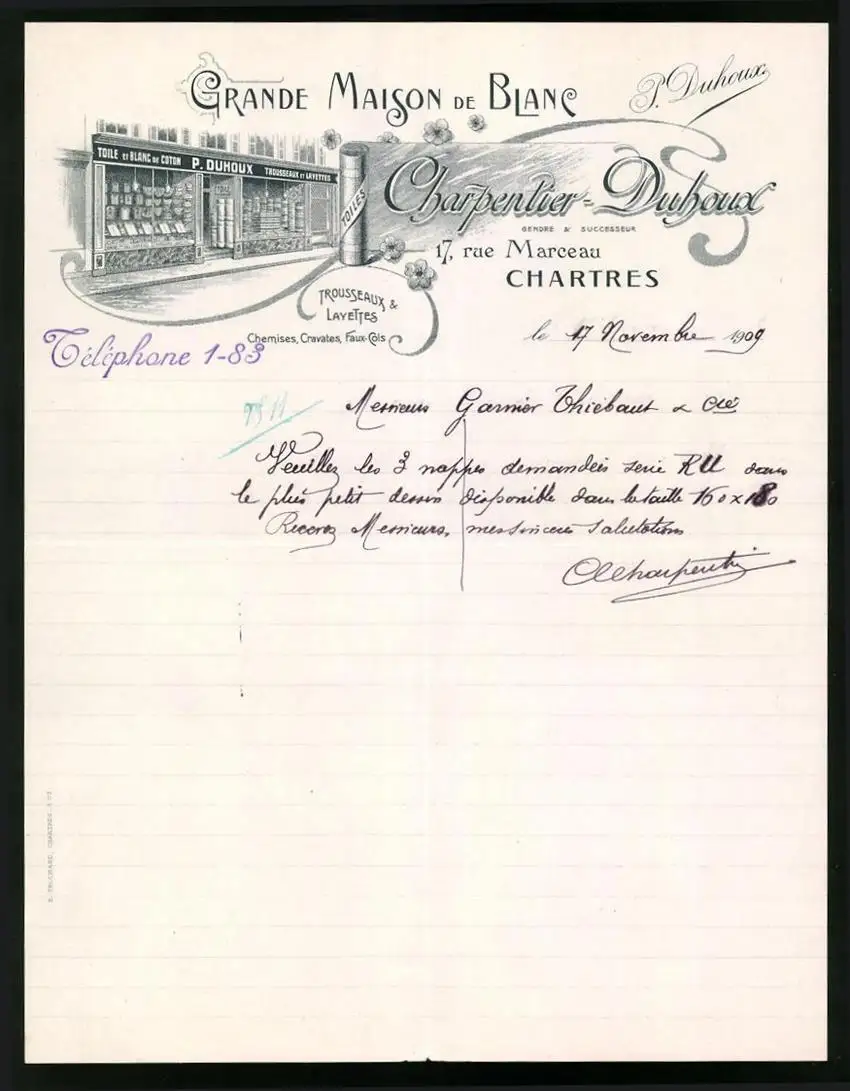 GRANDE MAISON DE BLANC
P. Duhoux
TOILE ET BLANC DE COTON P. DUHOUX TROUSSEAUX ET LAYETTES
TOILES
Charpentier-Duhoux
GENDRE & SUCCESSEUR
17, rue Marceau
CHARTRES
TROUSSEAUX &
LAYETTES
Chemises, Cravates, Faux-Cols
Téléphone 1-83
le 17 Novembre 1909
Messieurs Garnier Thiébaut & Cie
Veuillez les 3 nappes demandées serie RU dans
le plus petit dessin disponible dans la taille 160 x 180
Recevez Messieurs, mes sincères salutations
Charpentier